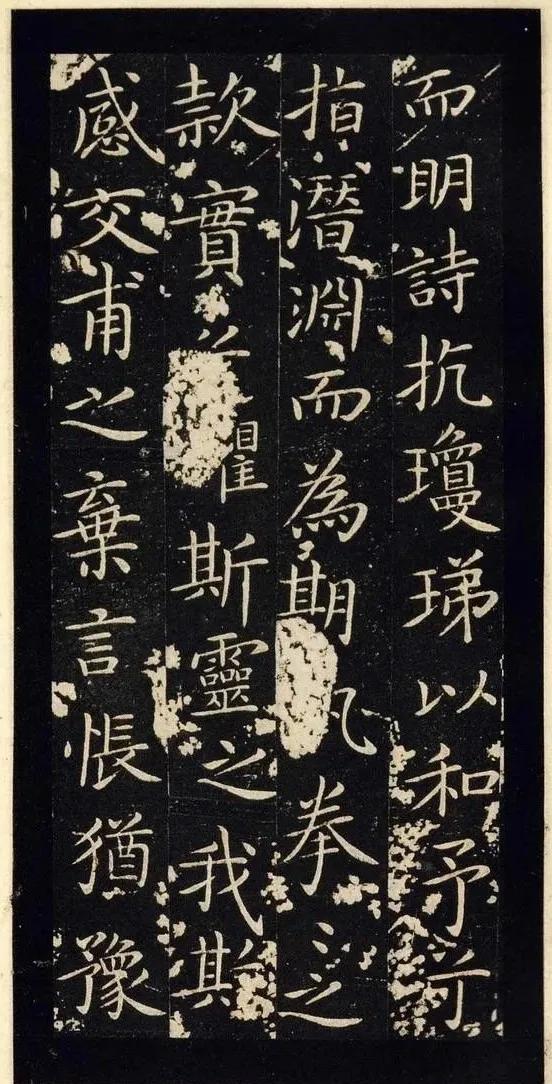 而明詩抗瓊珶以和予兮
指潛淵而為期拳〻之
款實兮斯靈之我
感交甫之棄言悵猶豫